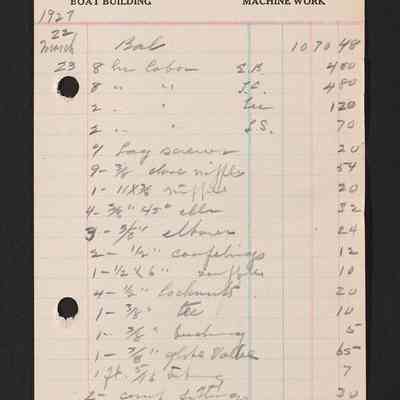 BOAT BUILDING MACHINE WORK
1927
22
March Bal 1070 48
23 8 hr labor E.B. 400
8 " " 480
2 " " 120
2 " " L.S. 70
9 Lag screws 20
9 - 3/8 close nipples 54
1 - nipple 20
4 - 3/8" 45° ells 32
3 - 3/8" elbows 24
2 - 1/2" couplings 12
1 - 1/2 x 6" nipples 10
4 - 1/2" locknuts 20
1 - 3/8" tee 10
1 - 3/8" bushing 5
1 - 3/8" globe valve 65
1 ft. 5/16 tubing 7
2 - comp fittings 30